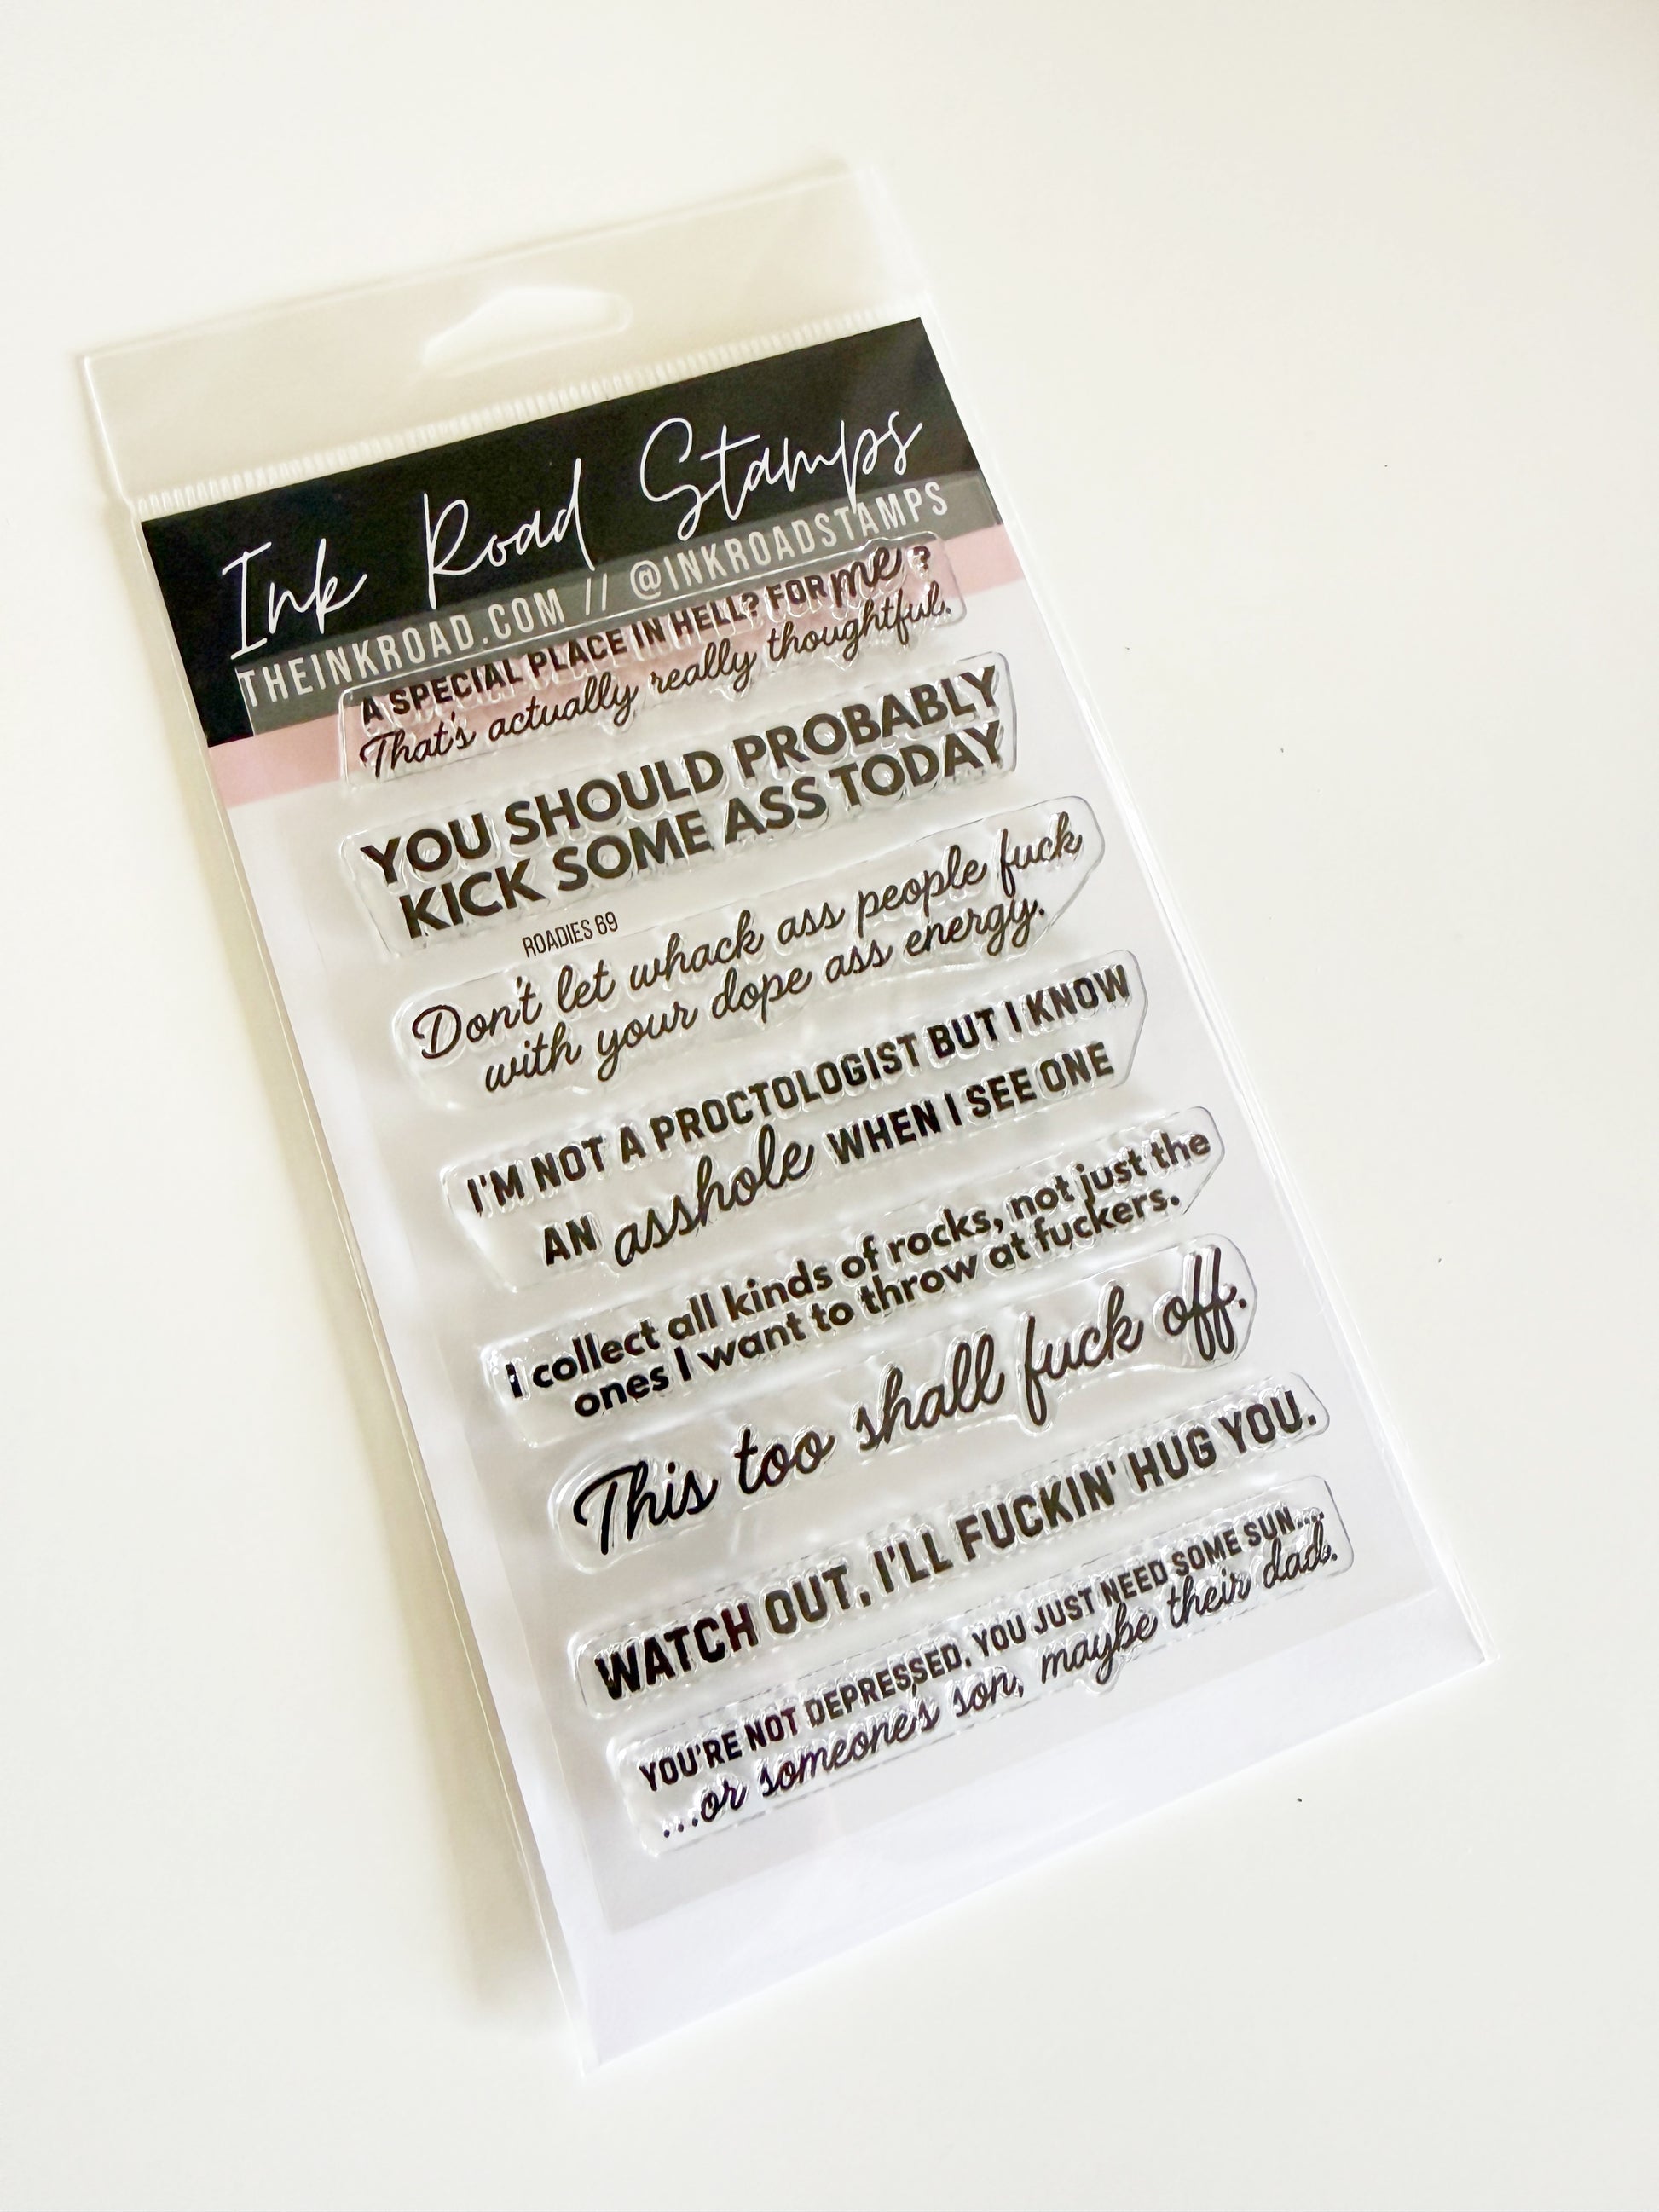 Ink Road Stamps
THEINKROAD.COM // @INKROADSTAMPS
A SPECIAL PLACE IN HELL? FOR me?
That's actually really thoughtful.
YOU SHOULD PROBABLY
KICK SOME ASS TODAY
ROADIES 69
Don't let whack ass people fuck
with your dope ass energy.
I'M NOT A PROCTOLOGIST BUT I KNOW
AN asshole WHEN I SEE ONE
I collect all kinds of rocks, not just the
ones I want to throw at fuckers.
This too shall fuck off.
WATCH OUT, I'LL FUCKIN' HUG YOU.
YOU'RE NOT DEPRESSED, YOU JUST NEED SOME SUN....
...or someone's son, maybe their dad.